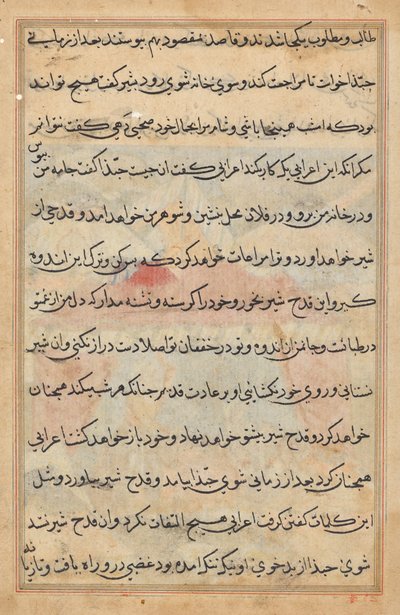 طالب و مطلوب یکجا شدند و قاصد مقصود بهم پیوستند بعد از زمانی
حبذا خواست تا مراجعت کند و سوی خانه شوی رود بشیر گفت هیچ تواند
بود که امشب همینجا باشی و شب مرا بجمال خود صحبی دهی گفت نتوانم
مگر آنکه این اعرابی یک کار بکند اعرابی گفت آن چیست حبذا گفت جامه من بپوش
و در خانه من برو و در فلان محل بنشین و شوهر من خواهد آمد و قدحی از
شیر خواهد آورد و ترا مراعات خواهد کرد که بس کن و ترک این اندوه
گیر و این قدح شیر بخور و خود را گرسنه و تشنه مدار که دل من از غم تو
در طپانست و جانم از اندوه تو در خفقان تو اصلا دست دراز نکنی و آن شیر
نستانی و روی خود نگشائی او بر عادت قدیم چنانکه هر شب میکند همچنان
خواهد کرد و قدح شیر پیش تو خواهد نهاد و خود باز خواهد گشت اعرابی
همچنان کرد بعد از زمانی شوی حبذا بیامد و قدح شیر بیاورد و مثل
این کلمات گفتن گرفت اعرابی هیچ التفات نکرد و آن قدح شیر نستد
شوی حبذا از بدخوی او نیک تنگ آمده بود غضبی در و راه یافت و تازیانه